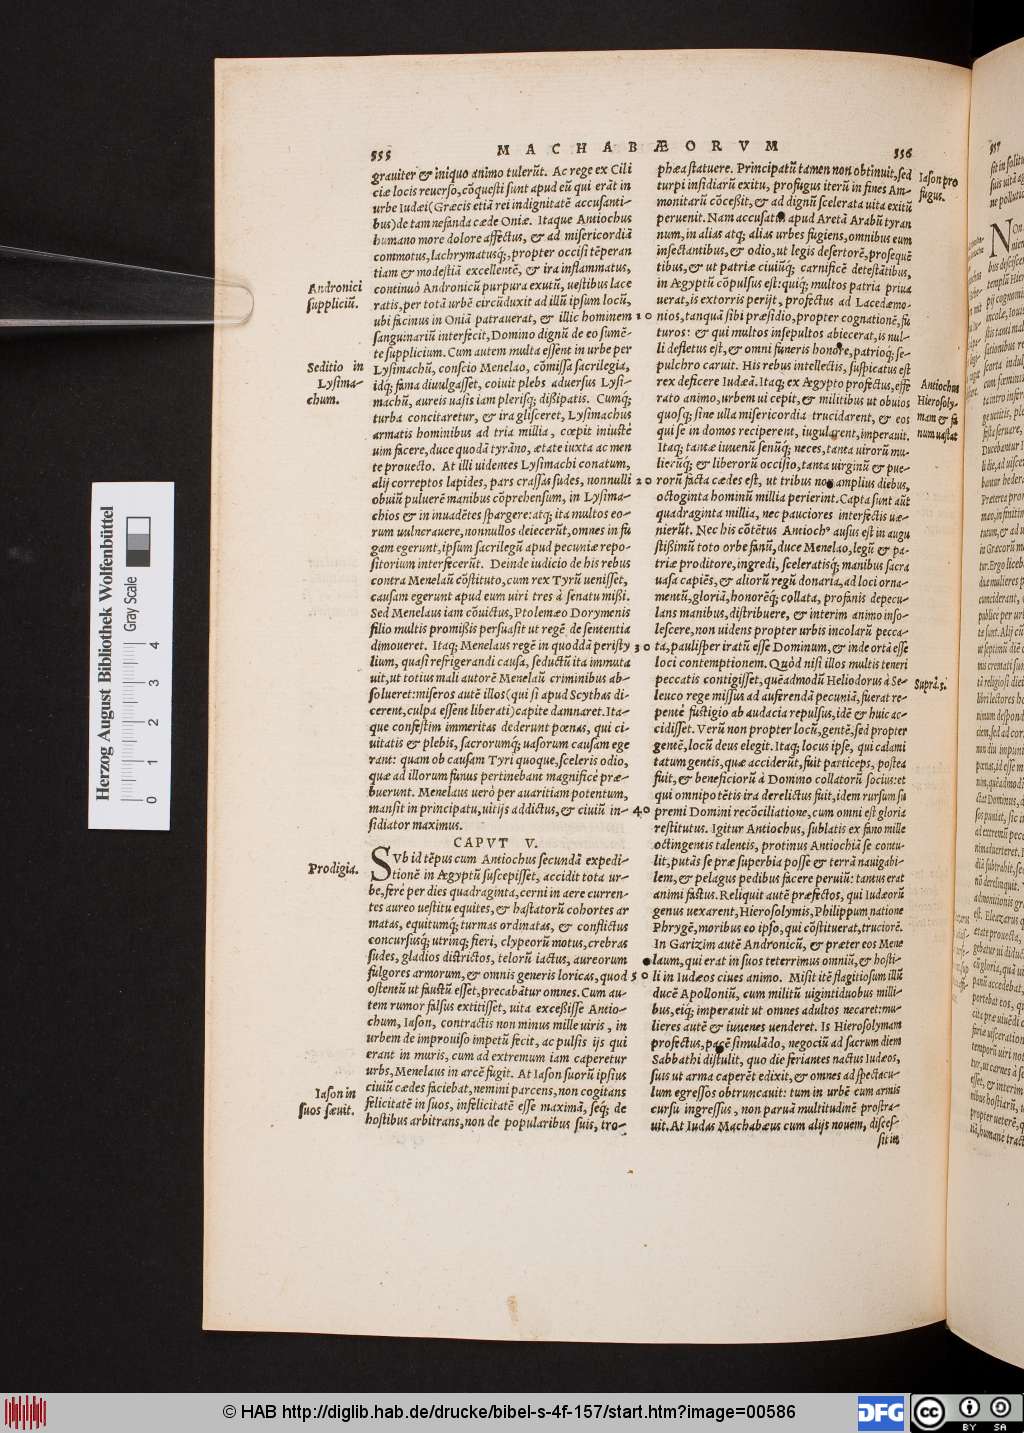 555
MACHABÆORVM
556
grauiter & iniquo animo tulerũt. Ac rege ex Cili
ciæ locis reuerso, cõquesti sunt apud eũ qui erãt in
urbe Iudæi (Græcis etiã rei indignitatẽ accusanti-
bus) de tam nefanda cæde Oniæ. Itaque Antiochus
humano more dolore affectus, & ad misericordiã
commotus, lachrymatusq́;, propter occisi tẽperan
tiam & modestiã excellentẽ, & ira inflammatus,
Andronici
suppliciũ.
continuò Andronicũ purpura exutũ, uestibus lace
ratis, per totã urbẽ circũduxit ad illũ ipsum locũ,
ubi facinus in Oniã patrauerat, & illic hominem
10
sanguinariũ interfecit, Domino dignũ de eo sumẽ-
te supplicium. Cum autem multa essent in urbe per
Seditio in
Lysima-
chum.
Lysimachũ, conscio Menelao, cõmissa sacrilegia,
idq; fama diuulgasset, coiuit plebs aduersus Lysi-
machũ, aureis uasis iam plerisq; dissipatis. Cumq́;
turba concitaretur, & ira glisceret, Lysimachus
armatis hominibus ad tria millia, cœpit iniustè
uim facere, duce quodã tyrãno, ætate iuxta ac men
te prouecto. At illi uidentes Lysimachi conatum,
alij correptos lapides, pars crassas sudes, nonnulli
20
obuiũ puluerẽ manibus cõprehensum, in Lysima-
chios & in inuadẽtes spargere: atq; ita multos eo-
rum uulnerauere, nonnullos deiecerũt, omnes in fu
gam egerunt, ipsum sacrilegũ apud pecuniæ repo-
sitorium interfecerũt. Deinde iudicio de his rebus
contra Menelaũ cõstituto, cum rex Tyrũ uenisset,
causam egerunt apud eum uiri tres à senatu missi.
Sed Menelaus iam cõuictus, Ptolemæo Dorymenis
filio multis promissis persuasit ut regẽ de sententia
dimoueret. Itaq; Menelaus regẽ in quoddã peristy
30
lium, quasi refrigerandi causa, seductũ ita immuta
uit, ut totius mali autorẽ Menelaũ criminibus ab-
solueret: miseros autẽ illos (qui si apud Scythas di-
cerent, culpa essent liberati) capite damnaret. Ita-
que confestim immeritas dederunt pœnas, qui ci-
uitatis & plebis, sacrorumq́; uasorum causam ege
rant: quam ob causam Tyri quoque, sceleris odio,
quæ ad illorum funus pertinebant magnificè præ-
buerunt. Menelaus uerò per auaritiam potentum,
mansit in principatu, uitijs addictus, & ciuiũ in-
40
sidiator maximus.
CAPVT V.
Prodigia.
SVb id tẽpus cum Antiochus secundã expedi-
tionẽ in Ægyptũ suscepisset, accidit tota ur-
be, ferè per dies quadraginta, cerni in aere curren-
tes aureo uestitu equites, & hastatorũ cohortes ar
matas, equitumq́; turmas ordinatas, & conflictus
concursusq́; utrinq; fieri, clypeorũ motus, crebras
sudes, gladios districtos, telorũ iactus, aureorum
fulgores armorum, & omnis generis loricas, quod
50
ostentũ ut faustũ esset, precabãtur omnes. Cum au-
tem rumor falsus extitisset, uita excessisse Antio-
chum, Iason, contractis non minus mille uiris, in
urbem de improuiso impetũ fecit, ac pulsis ijs qui
erant in muris, cum ad extremum iam caperetur
urbs, Menelaus in arcẽ fugit. At Iason suorũ ipsius
Iason in
suos sæuit.
ciuiũ cædes faciebat, nemini parcens, non cogitans
felicitatẽ in suos, infelicitatẽ esse maximã, seq; de
hostibus arbitrans, non de popularibus suis, tro-
phæa statuere. Principatũ tamen non obtinuit, sed
Iason pro
fugus.
turpi insidiarũ exitu, profugus iterũ in fines Am-
monitarũ cõcessit, & ad dignũ scelerata uita exitũ
peruenit. Nam accusatus apud Aretã Arabũ tyran
num, in alias atq; alias urbes fugiens, omnibus eum
insectantibus, & odio, ut legis desertorẽ, prosequẽ
tibus, & ut patriæ ciuiũq́; carnificẽ detestãtibus,
in Ægyptũ cõpulsus est: quiq́; multos patria priua
uerat, is extorris perijt, profectus ad Lacedæmo-
nios, tanquã sibi præsidio, propter cognationẽ, fu
turos: & qui multos insepultos abiecerat, is nul-
li defletus est, & omni funeris honore, patrioq́; se-
pulchro caruit. His rebus intellectis, suspicatus est
rex deficere Iudæã. Itaq; ex Ægypto profectus, effe
Antiochus
Hierosoly-
mam & fa
num uastat
rato animo, urbem ui cepit, & militibus ut obuios
quosq; sine ulla misericordia trucidarent, & eos
qui se in domos reciperent, iugularent, imperauit.
Itaq; tantæ iuuenũ senũq́; neces, tanta uirorũ mu-
lierũq́; & liberorũ occisio, tanta uirginũ & pue-
rorũ facta cædes est, ut tribus non amplius diebus,
octoginta hominũ millia perierint. Capta sunt aũt
quadraginta millia, nec pauciores interfectis uæ-
nierũt. Nec his cõtẽtus Antioch⁹ ausus est in augu
stissimũ toto orbe fanũ, duce Menelao, legũ & pa-
triæ proditore, ingredi, sceleratisq́; manibus sacra
uasa capiẽs, & aliorũ regũ donaria, ad loci orna-
mentũ, gloriã, honorẽq́; collata, profanis depecu-
lans manibus, distribuere, & interim animo inso-
lescere, non uidens propter urbis incolarũ pecca-
ta, paulisper iratũ esse Dominum, & inde ortã esse
loci contemptionem. Quòd nisi illos multis teneri
peccatis contigisset, quẽadmodũ Heliodorus à Se-
Suprà 3.
leuco rege missus ad auferendã pecuniã, fuerat re-
pentè fustigio ab audacia repulsus, idẽ & huic ac-
cidisset. Verũ non propter locũ, gentẽ, sed propter
gentẽ, locũ deus elegit. Itaq; locus ipse, qui calami
tatum gentis, quæ acciderũt, fuit particeps, postea
fuit, & beneficiorũ à Domino collatorũ socius: et
qui omnipotẽtis ira derelictus fuit, idem rursum su
premi Domini recõciliatione, cum omni est gloria
restitutus. Igitur Antiochus, sublatis ex fano mille
octingentis talentis, protinus Antiochiã se contu-
lit, putãs se præ superbia posse & terrã nauigabi-
lem, & pelagus pedibus facere peruiũ: tantus erat
animi fastus. Reliquit autẽ præfectos, qui Iudæorũ
genus uexarent, Hierosolymis, Philippum natione
Phrygẽ, moribus eo ipso, qui cõstituerat, truciorẽ.
In Garizim autẽ Andronicũ, & præter eos Mene
laum, qui erat in suos teterrimus omniũ, & hosti-
li in Iudæos ciues animo. Misit itẽ flagitiosum illũ
ducẽ Apolloniũ, cum militũ uigintiduobus milli-
bus, eiq́; imperauit ut omnes adultos necaret: mu-
lieres autẽ & iuuenes uenderet. Is Hierosolymam
profectus, pacẽ simulãdo, negociũ ad sacrum diem
Sabbathi distulit, quo die feriantes nactus Iudæos,
suis ut arma caperẽt edixit, & omnes ad spectacu-
lum egressos obtruncauit: tum in urbẽ cum armis
cursu ingressus, non paruã multitudinẽ prostra-
uit. At Iudas Machabæus cum alijs nouem, disces-
sit in
557
Herzog August Bibliothek Wolfenbüttel
Gray Scale
0 1 2 3 4
© HAB http://diglib.hab.de/drucke/bibel-s-4f-157/start.htm?image=00586
DFG
cc BY SA